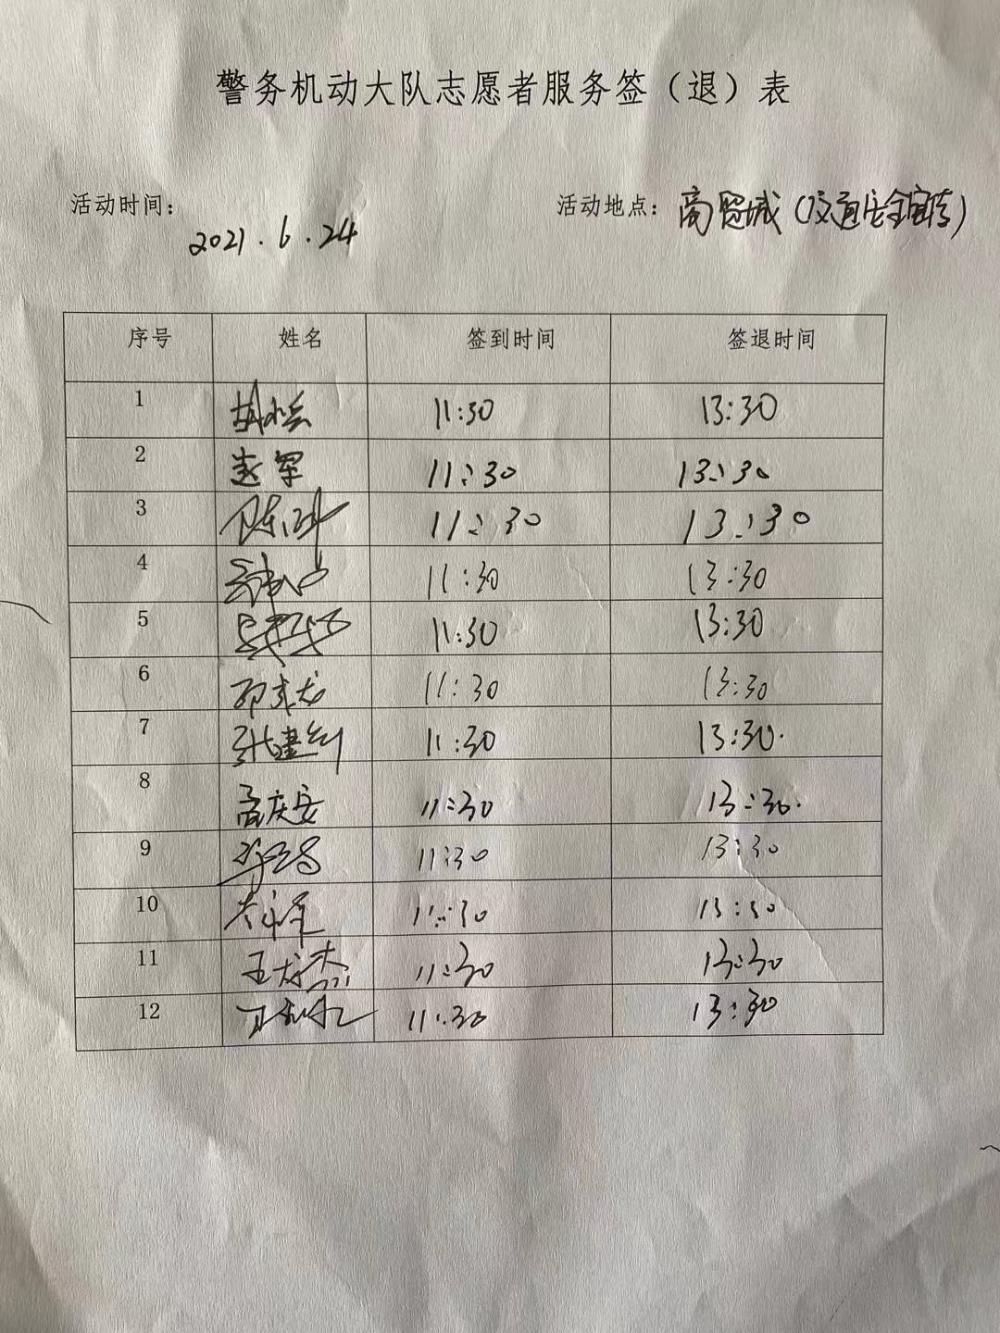 警务机动大队志愿者服务签（退）表
活动时间： 2021.6.24 活动地点：商贸城（交通安全宣传）
序号 姓名 签到时间 签退时间
1 11:30 13:30
2 赵军 11:30 13:30
3 11:30 13:30
4 11:30 13:30
5 11:30 13:30
6 11:30 13:30
7 11:30 13:30.
8 孟庆安 11:30 13:30.
9 11:30 13:30
10 11:30 13:30
11 王存杰 11:30 13:30
12 11:30 13:30